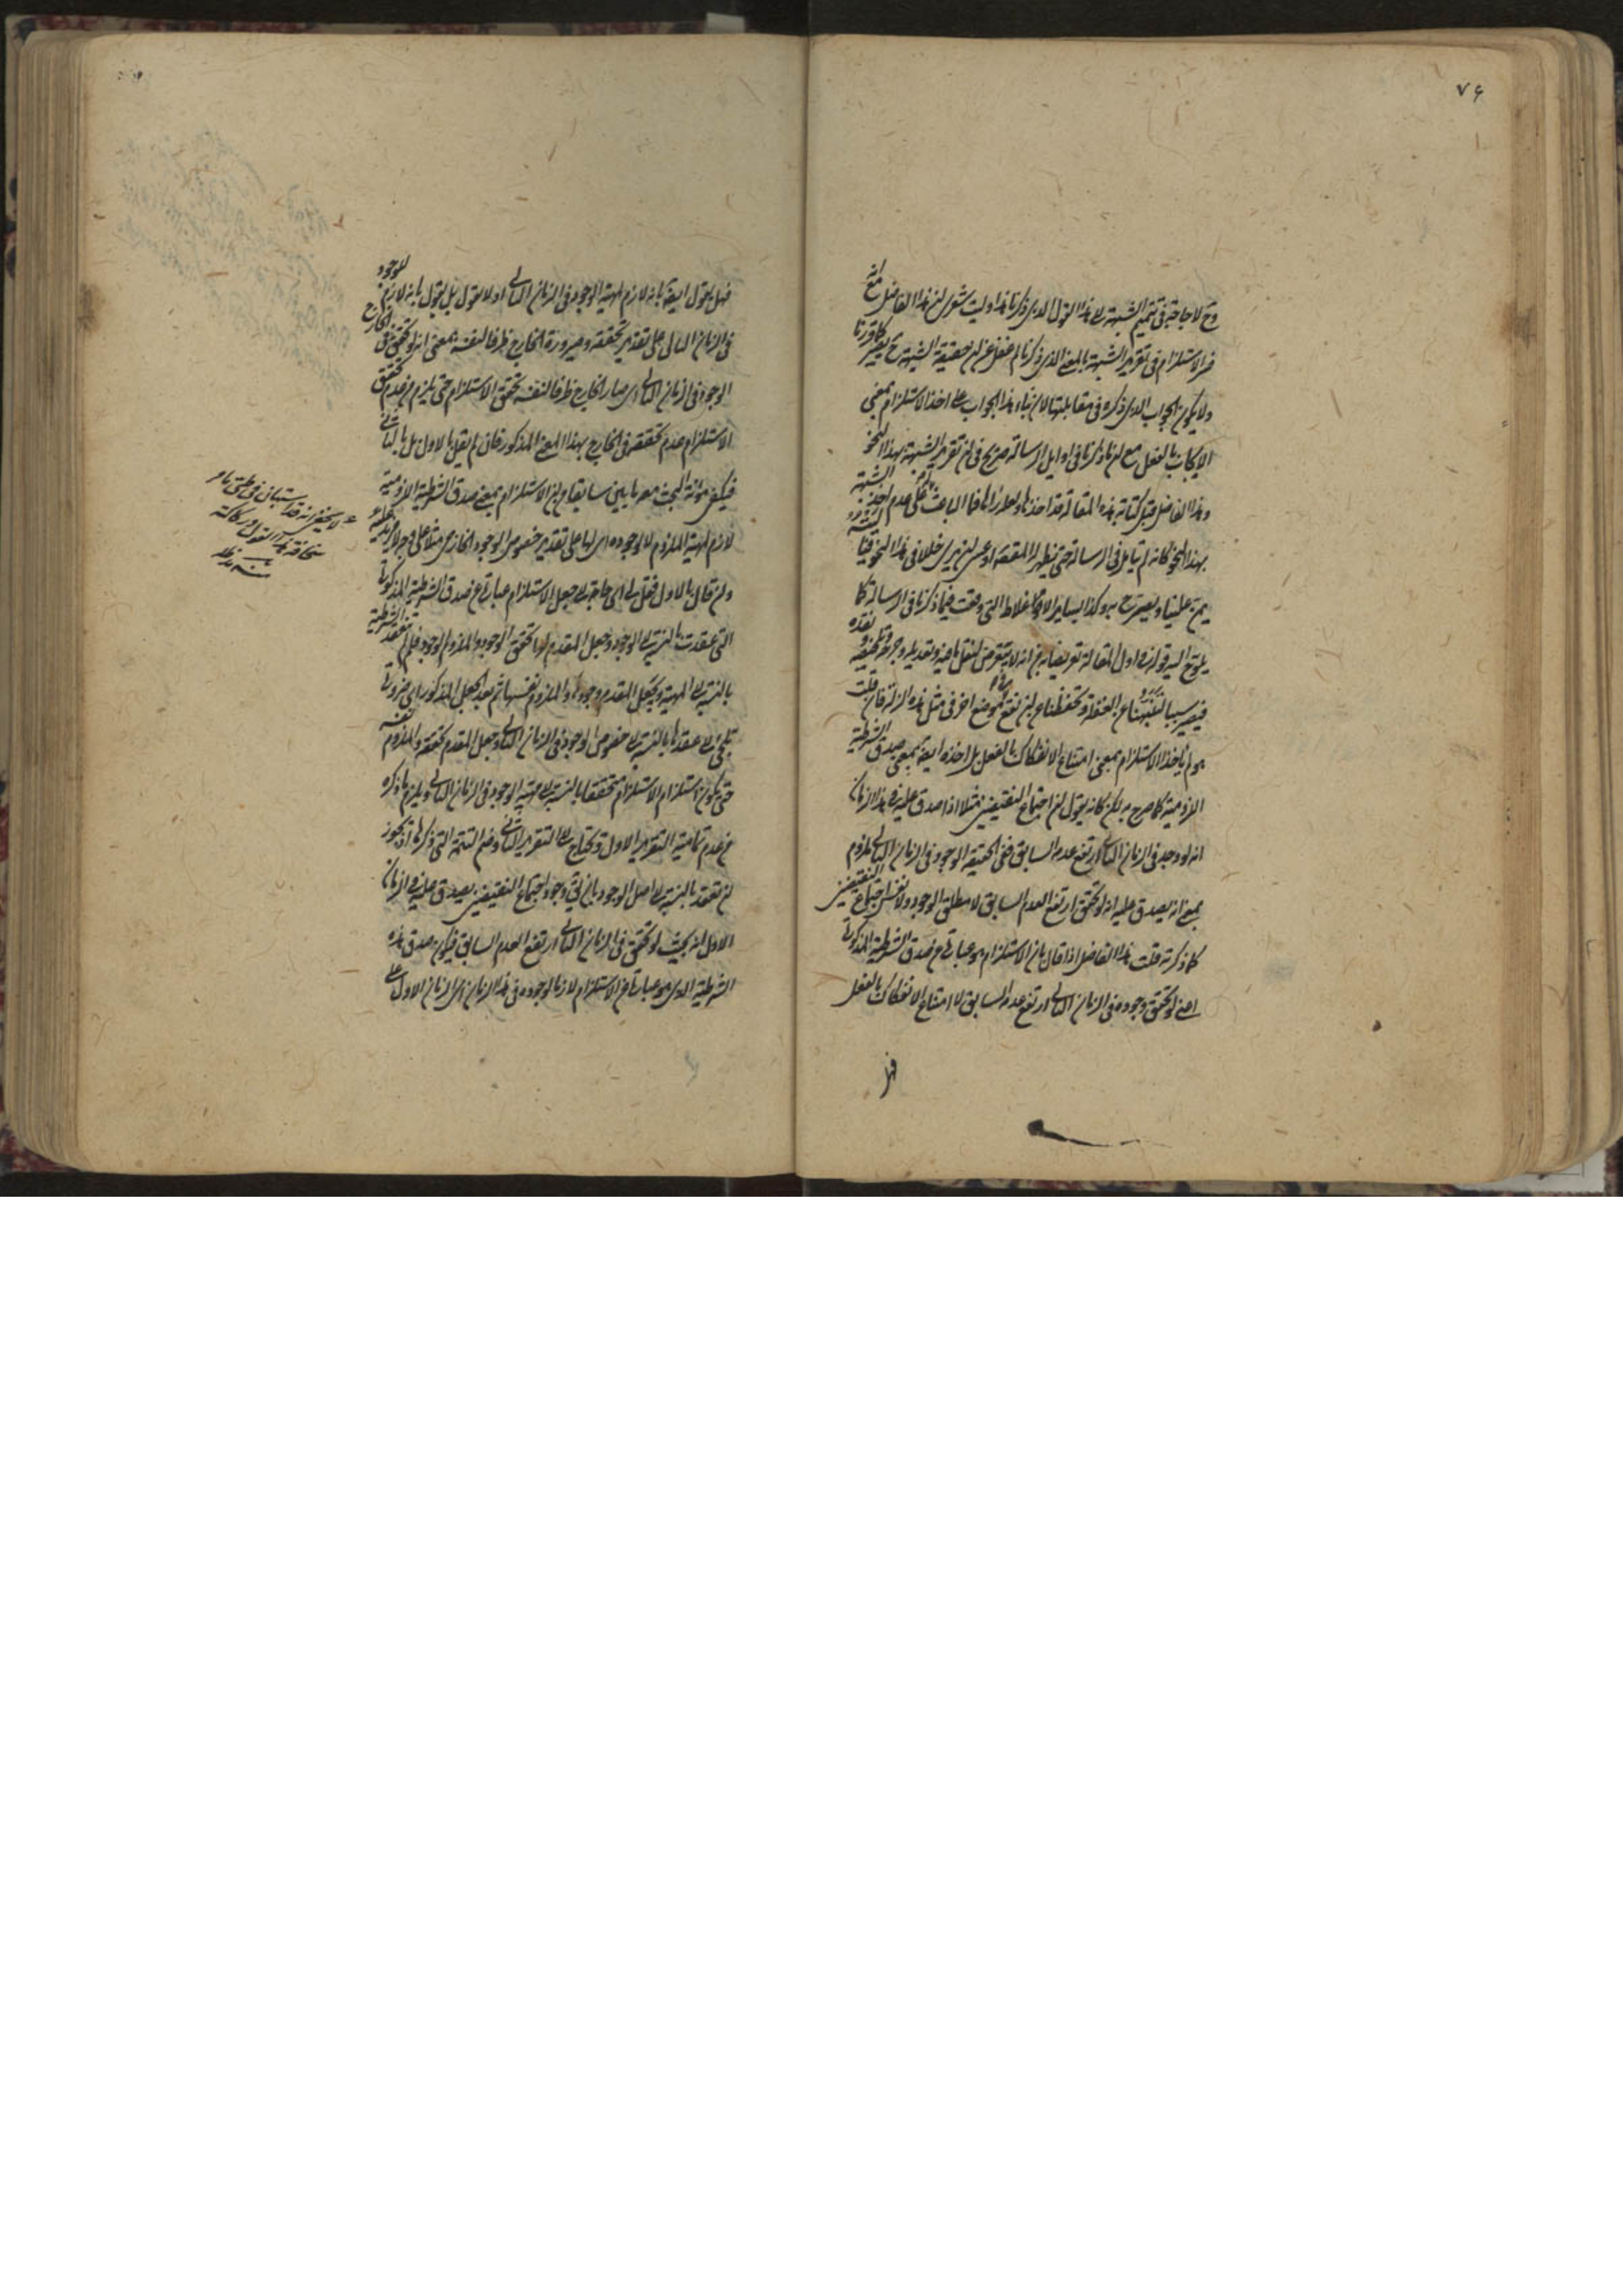 ۷۶
وح لا حاجة في تتميم الشبهة الى هذا القول الذي ذكرنا هذا وليت شعري ان هذا الفاضل مع انه
فسر الاستلزام في تقرير الشبهة بالمعنى الذي ذكرنا لم غفل عن ان حقيقة الشبهة ح يصير كما قررنا
ولا يكون الجواب الذي ذكره في مقابلتها لان بناء هذا الجواب على اخذ الاستلزام بمعنى
الايجاب بالفعل مع ان ما ذكرنا في اوايل الرسالة صريح في ان تقرير الشبهة بهذا النحو
وهذا الفاضل قبل كتابة هذه المقالة قد اخذها فما الباعث على عدم اخذ الشبهة
بهذا النحو كانه لم يتامل في الرسالة حتى يظهر له المقصد او عسى ان يرى خللا في هذا النحو
يمن علينا ويصرح به وكذا بساير الاغلاط التي وقعت فيما ذكرنا في الرسالة كما
يلوح اليه قوله في اول المقالة تعريضا به من انه لا يتعرض لنقل ما فيه وتعديله وجرحه
فيصير سببا لتنبهنا عن الغفلة وتحفظنا عن ان نقع في موضع اخر في مثل هذه الزلة فان قلت
هو لم ياخذ الاستلزام بمعنى امتناع الانفكاك بالفعل بل اخذه ايضا بمعنى صدق الشرطية
اللزومية كما صرح به لكن كانه يقول ان اجتماع النقيضين مثلا اذا صدق عليه في هذا الزمان
انه لو وجد في الزمان الثاني ارتفع عدمه السابق ففي الحقيقة الوجود في الزمان الثاني ملزوم
بمعنى انه يصدق عليه انه لو تحقق ارتفع العدم السابق لا مطلق الوجود ولا نفس اجتماع النقيضين
كما ذكرته قلت هذا الفاضل اذا قال بان الاستلزام هو عبارة عن صدق الشرطية المذكورة
اعني لو تحقق وجوده في الزمان الثاني ارتفع عدمه السابق لا امتناع الانفكاك بالفعل
فهل
فهل يقول ايضا بانه لازم لمهية الوجود في الزمان الثاني او لا يقول بل يقول بانه لازم للوجود
في الزمان الثاني على تقدير تحققه وصيرورة الخارج ظرفا لنفسه بمعنى انه لو تحقق في الخارج
الوجود في الزمان الثاني اي صار الخارج ظرفا لنفسه تحقق الاستلزام حتى يلزم من عدم تحقق
الاستلزام عدم تحققه في الخارج بهذا المعنى المذكور فان لم يقل بالاول بل بالثاني
فيكفي مؤنة البحث معه ما بين سابقا من ان الاستلزام بمعنى صدق الشرطية اللزومية
لازم لمهية الملزوم لا لوجوده اي لها على تقدير خصوص الوجود الخارجي مثلا على وجه لا مزيد عليه
وان قال بالاول فنقول اي حاجة الى جعل الاستلزام عبارة عن صدق الشرطية المذكورة
التي عقدت بالنسبة الى الوجود وجعل المقدم لها تحقق الوجود والملزوم الوجود فلم لم تعقد الشرطية
بالنسبة الى المهية ويجعل المقدم وجودها والملزوم نفسها ثم بعد الجعل المذكور اي ضرورة
تلجئ الى عقدها بالنسبة الى خصوص الوجود في الزمان الثاني وجعل المقدم تحققه والملزوم نفسه
حتى يكون استلزام الاستلزام متحققا بالنسبة الى مهية الوجود في الزمان الثاني ويلزم ما ذكره
من عدم تمامية التقرير الاول وتحتاج الى التقرير الثاني وضم التتمة التي ذكرها اذ يجوز
ان تعقد بالنسبة الى اصل الوجود بان يق وجود اجتماع النقيضين يصدق عليه في الزمان
الاول انه بحيث لو تحقق في الزمان الثاني ارتفع العدم السابق فيكون صدق هذه
الشرطية الذي هو عبارة عن الاستلزام لازما لوجوده في هذا الزمان اي الزمان الاول على
لا يخفى انه قد استبان في طي ما مر
سخافة هذا القول وركاكته
منه مد ظله